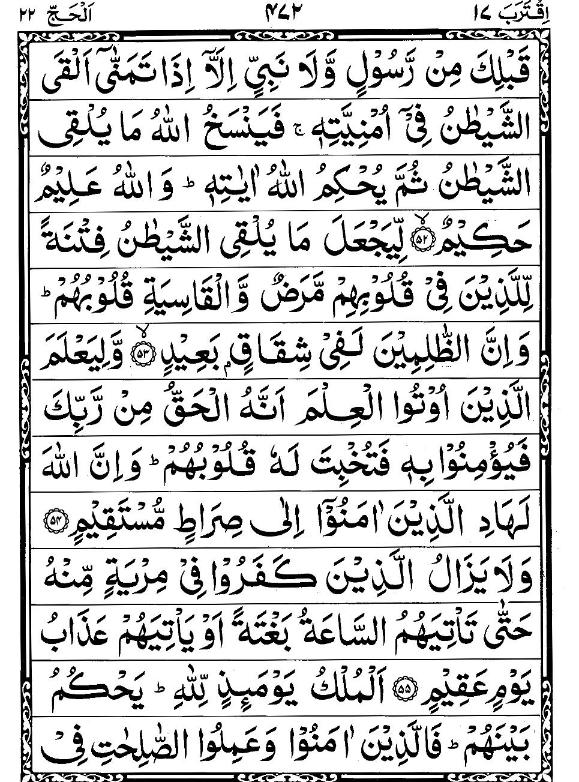 اِقْتَرَبَ ١٧ ٤٧٢ اَلْحَجّ ٢٢
قَبْلِكَ مِنْ رَّسُوْلٍ وَّلَا نَبِيٍّ اِلَّاۤ اِذَا تَمَنّٰۤى اَلْقَى
الشَّيْطٰنُ فِىْۤ اُمْنِيَّتِهٖ ۚ فَيَنْسَخُ اللّٰهُ مَا يُلْقِى
الشَّيْطٰنُ ثُمَّ يُحْكِمُ اللّٰهُ اٰيٰتِهٖ ؕ وَ اللّٰهُ عَلِيْمٌ
حَكِيْمٌ ۙ‏﴿۵۲﴾ لِّيَجْعَلَ مَا يُلْقِى الشَّيْطٰنُ فِتْنَةً
لِّلَّذِيْنَ فِىْ قُلُوْبِهِمْ مَّرَضٌ وَّالْقَاسِيَةِ قُلُوْبُهُمْ ؕ
وَاِنَّ الظّٰلِمِيْنَ لَفِىْ شِقَاقٍۢ بَعِيْدٍ ۙ‏﴿۵۳﴾ وَّلِيَعْلَمَ
الَّذِيْنَ اُوْتُوا الْعِلْمَ اَنَّهُ الْحَقُّ مِنْ رَّبِّكَ
فَيُؤْمِنُوْا بِهٖ فَتُخْبِتَ لَهٗ قُلُوْبُهُمْ ؕ وَاِنَّ اللّٰهَ
لَهَادِ الَّذِيْنَ اٰمَنُوْۤا اِلٰى صِرَاطٍ مُّسْتَقِيْمٍ ﴿۵۴﴾
وَلَا يَزَالُ الَّذِيْنَ كَفَرُوْا فِىْ مِرْيَةٍ مِّنْهُ
حَتّٰى تَاْتِيَهُمُ السَّاعَةُ بَغْتَةً اَوْ يَاْتِيَهُمْ عَذَابُ
يَوْمٍ عَقِيْمٍ ﴿۵۵﴾ اَلْمُلْكُ يَوْمَئِذٍ لِّلّٰهِ ؕ يَحْكُمُ
بَيْنَهُمْ ؕ فَالَّذِيْنَ اٰمَنُوْا وَعَمِلُوا الصّٰلِحٰتِ فِىْ